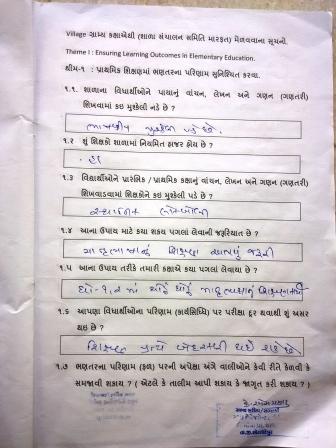 Village ગ્રામ્ય કક્ષાએથી (શાળા સંચાલન સમિતિ મારફત) મેળવવાના સૂચનો.
Theme I : Ensuring Learning Outcomes in Elementary Education.
થીમ-૧ : પ્રાથમિક શિક્ષણમાં ભણતરના પરિણામ સુનિશ્ચિત કરવા.
૧.૧. શાળાના વિદ્યાર્થીઓને પાયાનું વાંચન, લેખન અને ગણન (ગણતરી)
શિખવામાં કઇ મુશ્કેલી નડે છે ?
મુશ્કેલી પડે છે.
૧.૨ શું શિક્ષકો શાળામાં નિયમિત હાજર હોય છે ?
હા
૧.૩ વિદ્યાર્થીઓને પ્રારંભિક / પ્રાથમિક કક્ષાનું વાંચન, લેખન અને ગણન (ગણતરી)
શિખવાડવામાં શિક્ષકોને કઇ મુશ્કેલી પડે છે ?
સ્થાનિક લોકબોલી
૧.૪ આના ઉપાય માટે કયા કયા પગલાં લેવાની જરૂરિયાત છે ?
માતૃભાષાનું શિક્ષણ આપવું જરૂરી
૧.૫ આના ઉપાય તરીકે તમારી કક્ષાએ કયા પગલાં લેવાયા છે ?
ધો-૧,૨ માં માતૃભાષાનું
૧.૬ આપણા વિદ્યાર્થીઓના પરિણામ (કાર્યસિધ્ધિ) પર પરીક્ષા દૂર થવાથી શું અસર
થઇ છે ?
શિક્ષણ પ્રત્યે બેદરકારી થઇ શકે છે
૧.૭ ભણતરના પરિણામ (ફળ) પરની અપેક્ષા અંગે વાલીઓને કેવી રીતે કેળવી કે
સમજાવી શકાય ? ( એટલે કે તાલીમ આપી શકાય કે જાગૃત કરી શકાય ? )